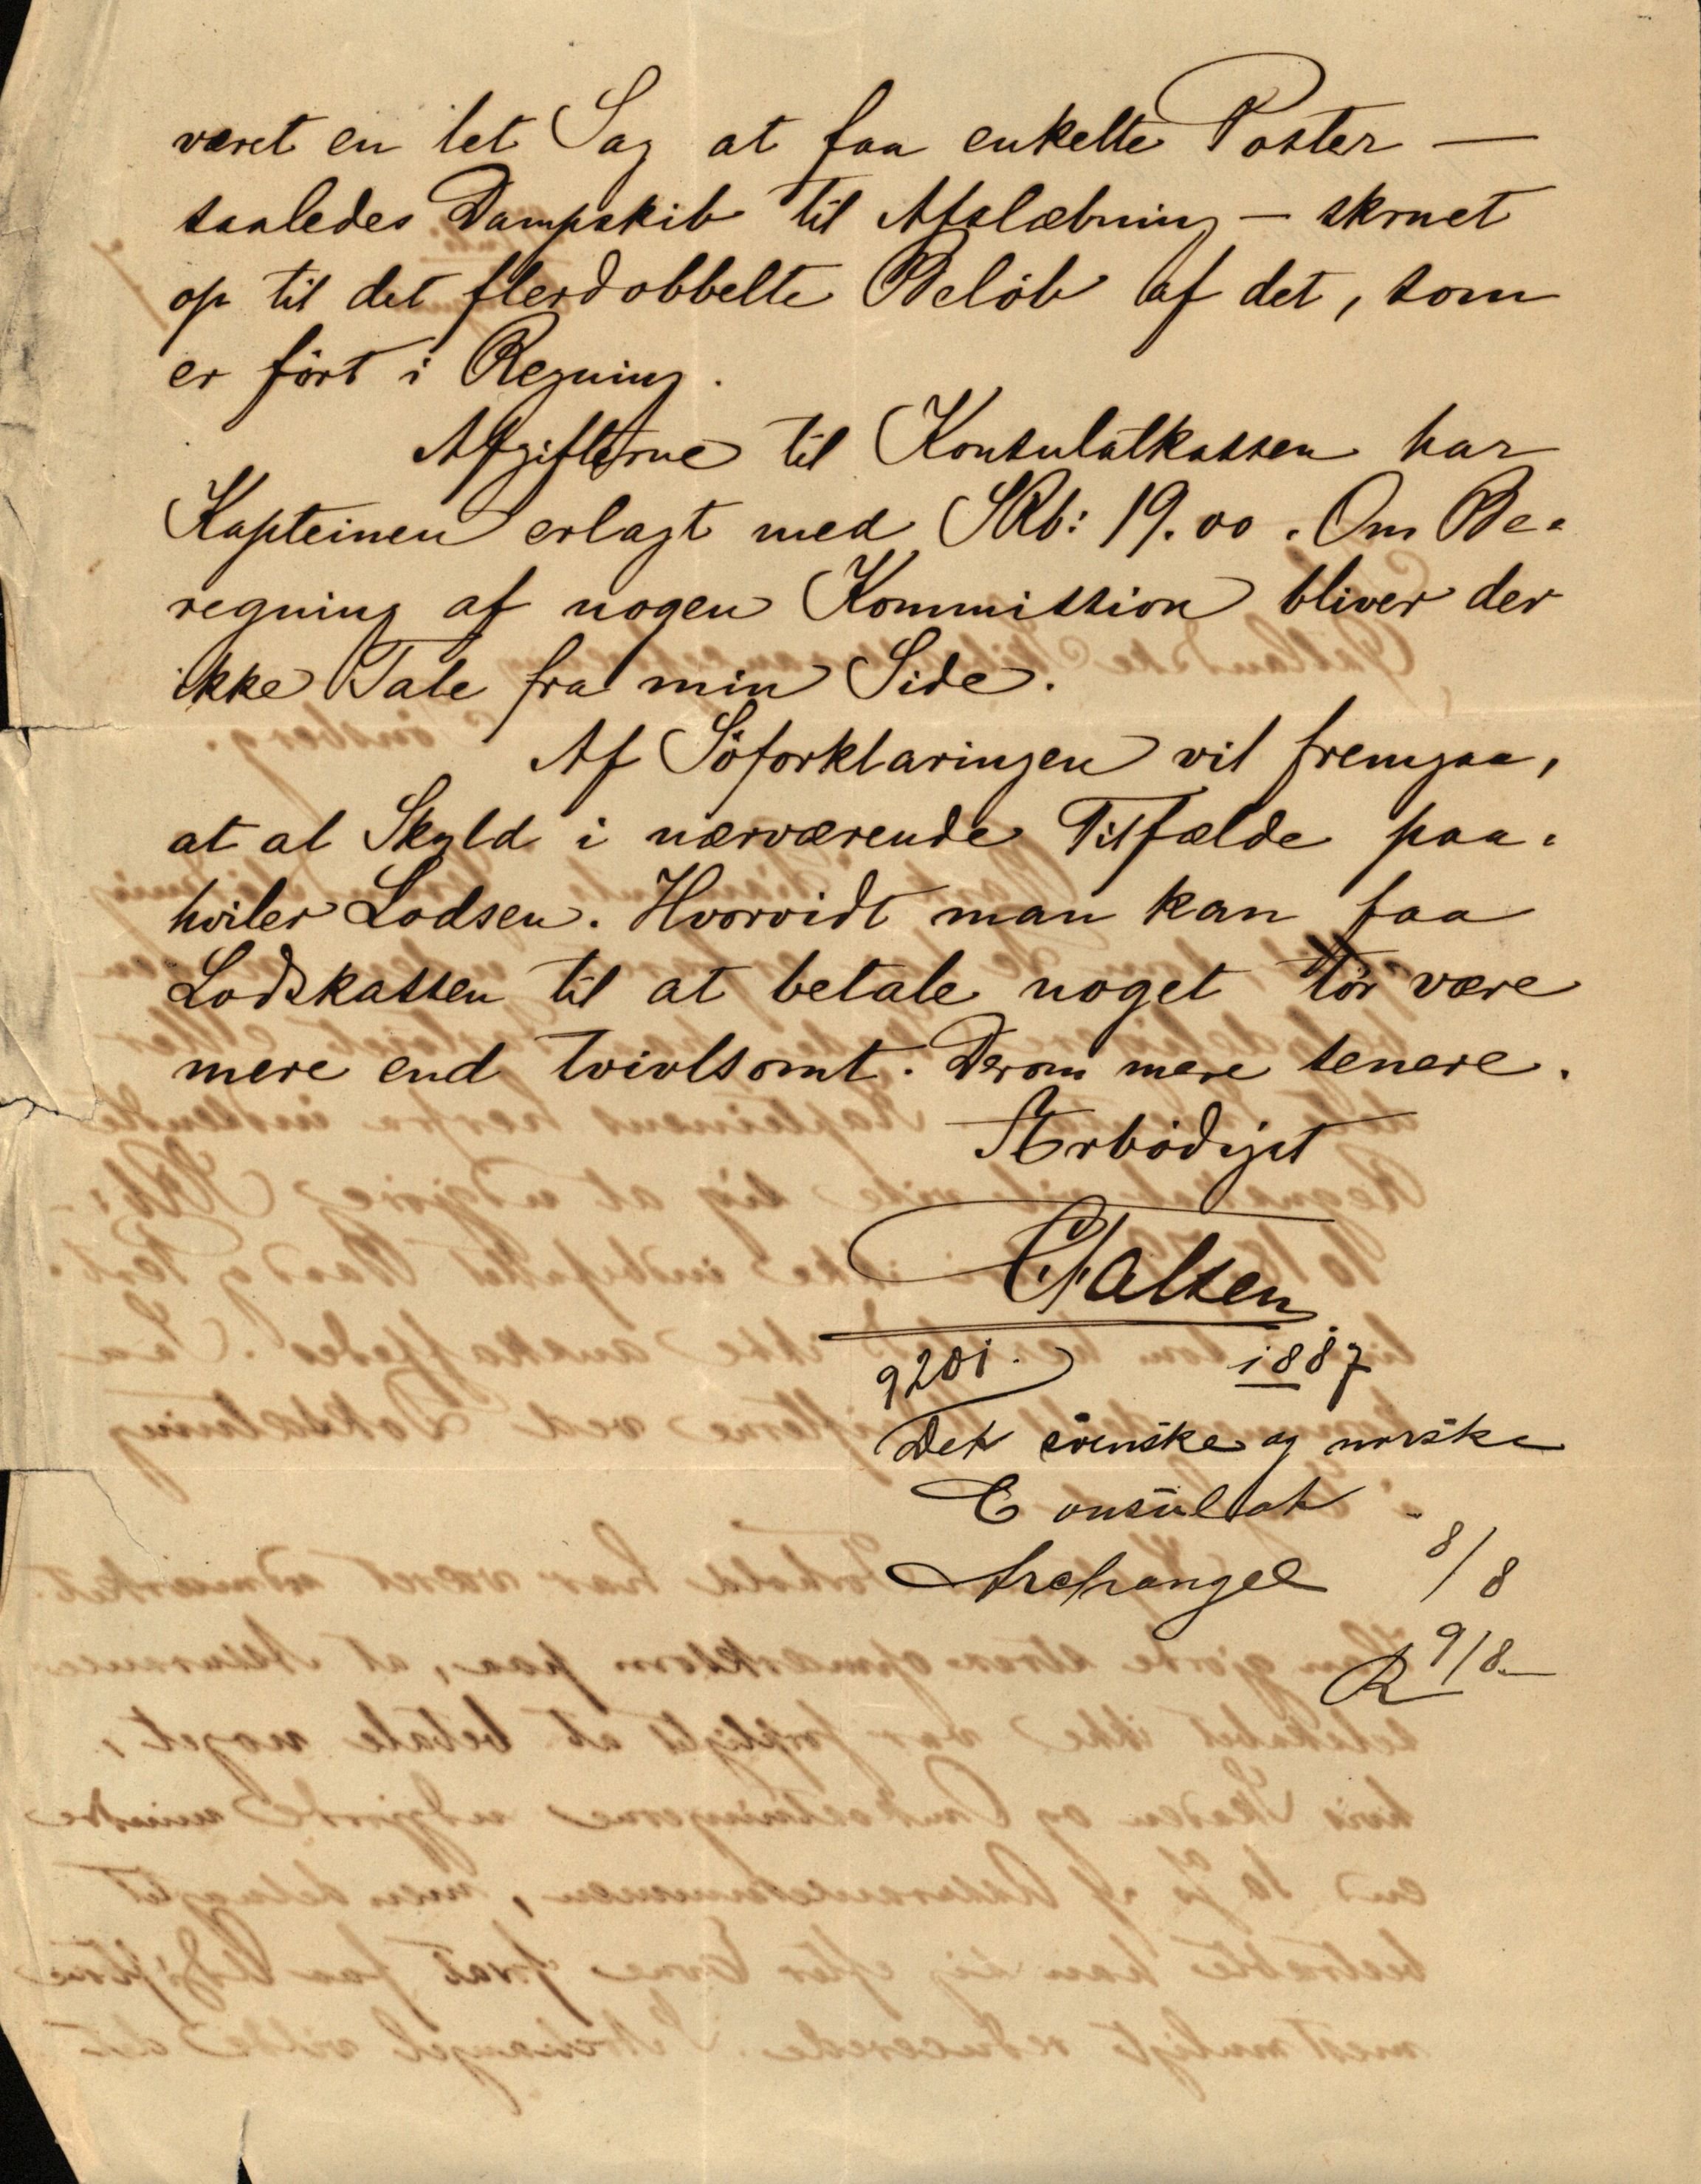 været en let Sag at faa enkelte Poster —
saaledes Dampskib til Afslæbning — skruet
op til det flerdobbelte Beløb af det, som
er ført i Regning.
Afgifterne til Konsulatkassen har
Kapteinen erlagt med SRb: 19.00. Om Be-
regning af nogen Kommission bliver der
ikke Tale fra min Side.
Af Söforklaringen vil fremgaa,
at al Skyld i nærværende Tilfælde paa-
hviler Lodsen. Hvorvidt man kan faa
Lodskassen til at betale noget tör være
mere end tvivlsomt. Derom mere senere.
Ærbödigst
Falsen
9201. 1887
Det svenske og norske
Consulat
Archangel 8/8
R 9/8